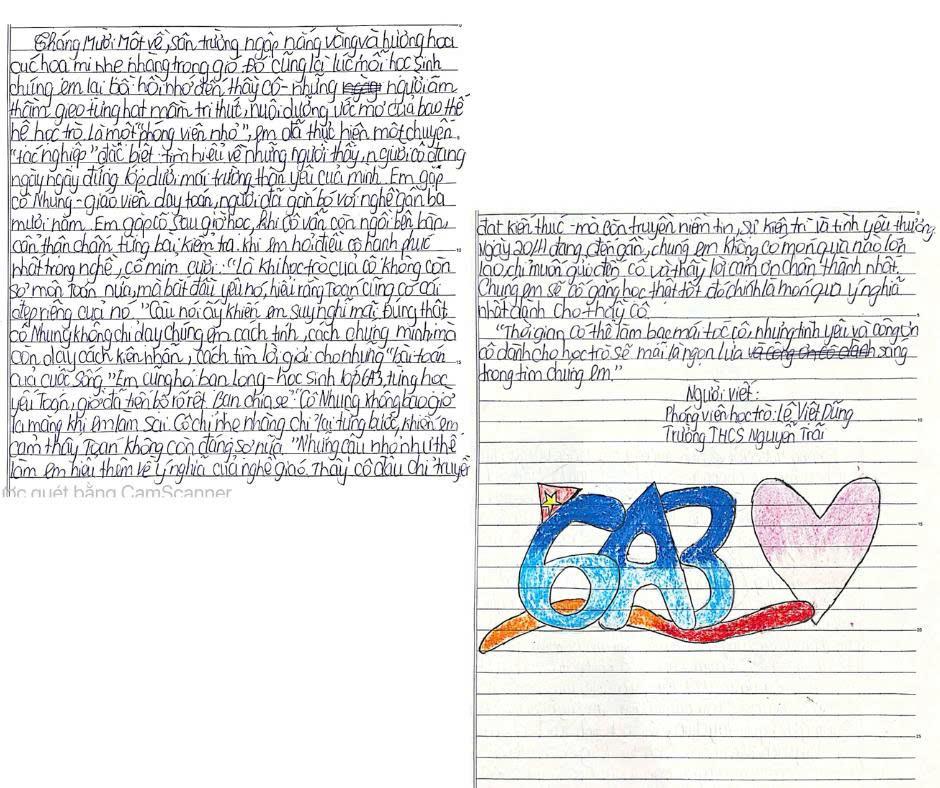 Tháng Mười Một về, sân trường ngập nắng vàng và hương hoa
cúc họa mi nhẹ nhàng trong gió. Đó cũng là lúc mỗi học sinh
chúng em lại bồi hồi nhớ đến thầy cô - những người âm
thầm gieo từng hạt mầm tri thức, nuôi dưỡng ước mơ của bao thế
hệ học trò. Là một "phóng viên nhỏ", em đã thực hiện một chuyến
"tác nghiệp" đặc biệt: tìm hiểu về những người thầy, người cô đang
ngày ngày đứng lớp dưới mái trường thân yêu của mình. Em gặp
cô Nhung - giáo viên dạy toán, người đã gắn bó với nghề gần ba
mươi năm. Em gặp cô sau giờ học, khi cô vẫn còn ngồi bên bàn,
cẩn thận chấm từng bài kiểm tra. khi em hỏi điều cô hạnh phúc
nhất trong nghề, cô mỉm cười: "Là khi học trò của cô không còn
sợ môn Toán nữa, mà bắt đầu yêu nó, hiểu rằng Toán cũng có cái
đẹp riêng của nó. "Câu nói ấy khiến em suy nghĩ mãi. Đúng thật
cô Nhung không chỉ dạy chúng em cách tính, cách chứng minh, mà
còn dạy cách kiên nhẫn, cách tìm lời giải cho những "bài toán
của cuộc sống." Em cũng hỏi bạn long - học sinh lớp 6A3, từng học
yếu Toán, giờ đã tiến bộ rõ rệt. Bạn chia sẻ "Cô Nhung không bao giờ
la mắng khi em làm sai. Cô chỉ nhẹ nhàng chỉ lại từng bước, khiến em
cảm thấy Toán không còn đáng sợ nữa. "Những câu nhỏ như thế
làm em hiểu thêm về ý nghĩa của nghề giáo. Thầy cô đâu chỉ truyền
ược quét bằng CamScanner
đạt kiến thức - mà còn truyền niềm tin, sự kiên trì và tình yêu thương.
Ngày 20/11 đang đến gần, chúng em không có món quà nào lớn
lao, chỉ muốn gửi đến cô và thầy lời cảm ơn chân thành nhất.
Chúng em sẽ cố gắng học thật tốt đó chính là món quà ý nghĩa
nhất dành cho thầy cô.
"Thời gian có thể làm bạc mái tóc cô, nhưng tình yêu và công ơn
cô dành cho học trò sẽ mãi là ngọn lửa và công ơn cô dành sáng
trong tim chúng em."
Người viết:
Phóng viên học trò: Lê Việt Dũng
Trường THCS Nguyễn Trãi
6A3